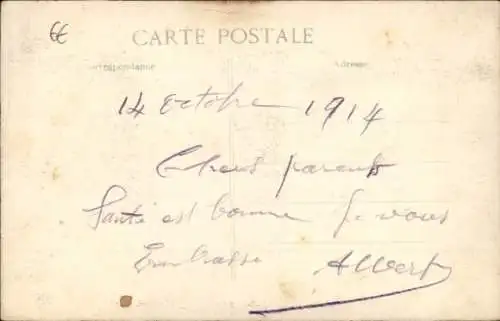 CARTE POSTALE
Correspondance Adresse
14 Octobre 1914
Chers parents
Santé est bonne Je vous
Embrasse Albert